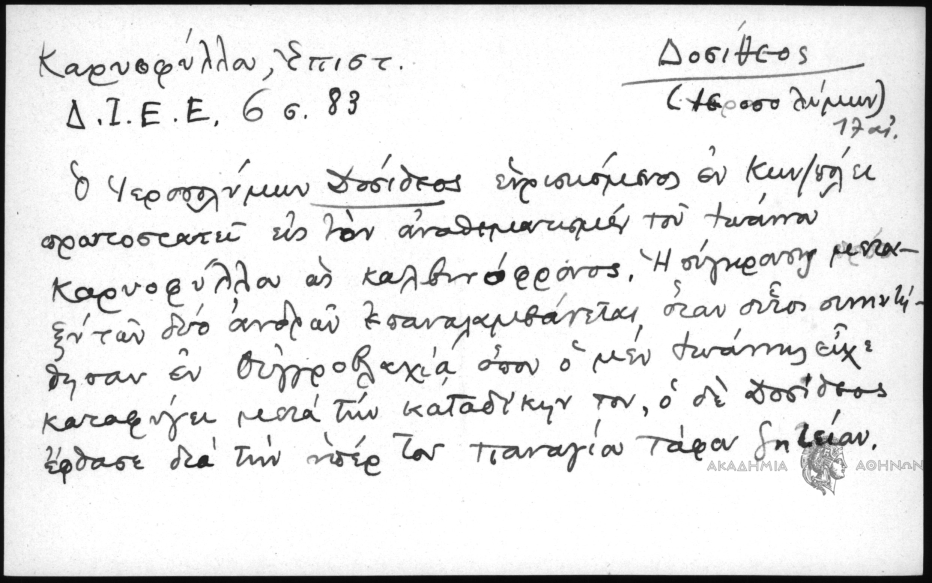 Καρυοφύλλου, Ἐπιστ.
Δοσίθεος
Δ.Ι.Ε.Ε. 6 σ. 83
(Ἱεροσολύμων)
17 αἰ.
Ὁ Ἱεροσολύμων Δοσίθεος εὑρισκόμενος ἐν Κων/πόλει
πρωτοστατεῖ εἰς τὸν ἀναθεματισμόν τοῦ Ἰωάννου
Καρυοφύλλου ὡς καλβινόφρονος. Ἡ σύγκρουσις μετα-
ξύ τῶν δύο ἀνδρῶν ἐπαναλαμβάνεται, ὅταν οὗτοι συνηντή-
θησαν ἐν Οὑγγροβλαχίᾳ ὅπου ὁ μέν Ἰωάννης εἶχε
καταφύγει μετά τήν καταδίκην του, ὁ δὲ Δοσίθεος
ἔφθασε διά τήν ὑπέρ τοῦ Παναγίου Τάφου ζητείαν.
ΑΚΑΔΗΜΙΑ ΑΘΗΝΩΝ